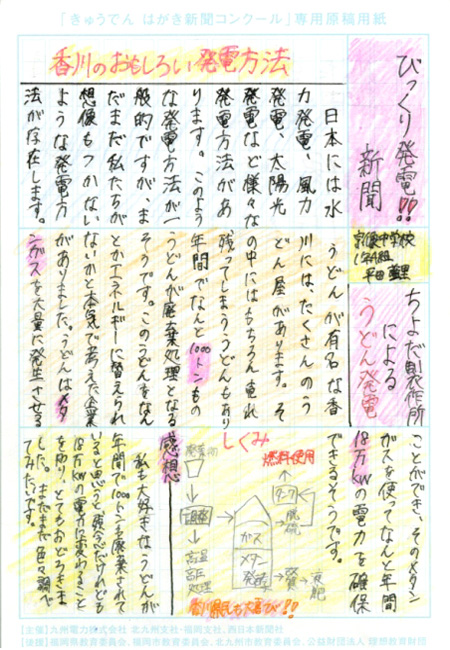 「きゅうでん はがき新聞コンクール」専用原稿用紙
びっくり発電!!
新聞
中学校
香川のおもしろい発電方法
日本には水
力発電、風力
発電、太陽光
発電など様々な
発電方法があ
ります。このよう
な発電方法が一
般的ですが、ま
だまだ私たちが
想像もつかない
ような発電方
法が存在します。
ちよだ製作所
による
うどん発電
うどんが有名な香
川には、たくさんのう
どん屋があります。そ
の中にはもちろん売れ
残ってしまううどんもあり
年間でなんと1000トンもの
うどんが廃棄処理となる
そうです。このうどんをなん
とかエネルギーに替えられ
ないかと本気で考えた企業
がありました。うどんはメタ
ンガスを大量に発生させる
ことができ、そのメタン
ガスを使ってなんと年間
18万kWの電力を確保
できるそうです。
しくみ
燃料使用
タンク
脱硫
ガス
メタン
発酵
液肥
高温
高圧
処理
香川県民も大喜び!!
感想
私も大好きなうどんが
年間で1000トンも廃棄されて
いると思うと、残念だけれども
18万kWの電力に変わること
を知り、とてもおどろきま
した。まだまだ色々調べ
てみたいです。
【主催】九州電力株式会社 北九州支社・福岡支社、西日本新聞社
【後援】福岡県教育委員会、福岡市教育委員会、北九州市教育委員会、公益財団法人 理想教育財団